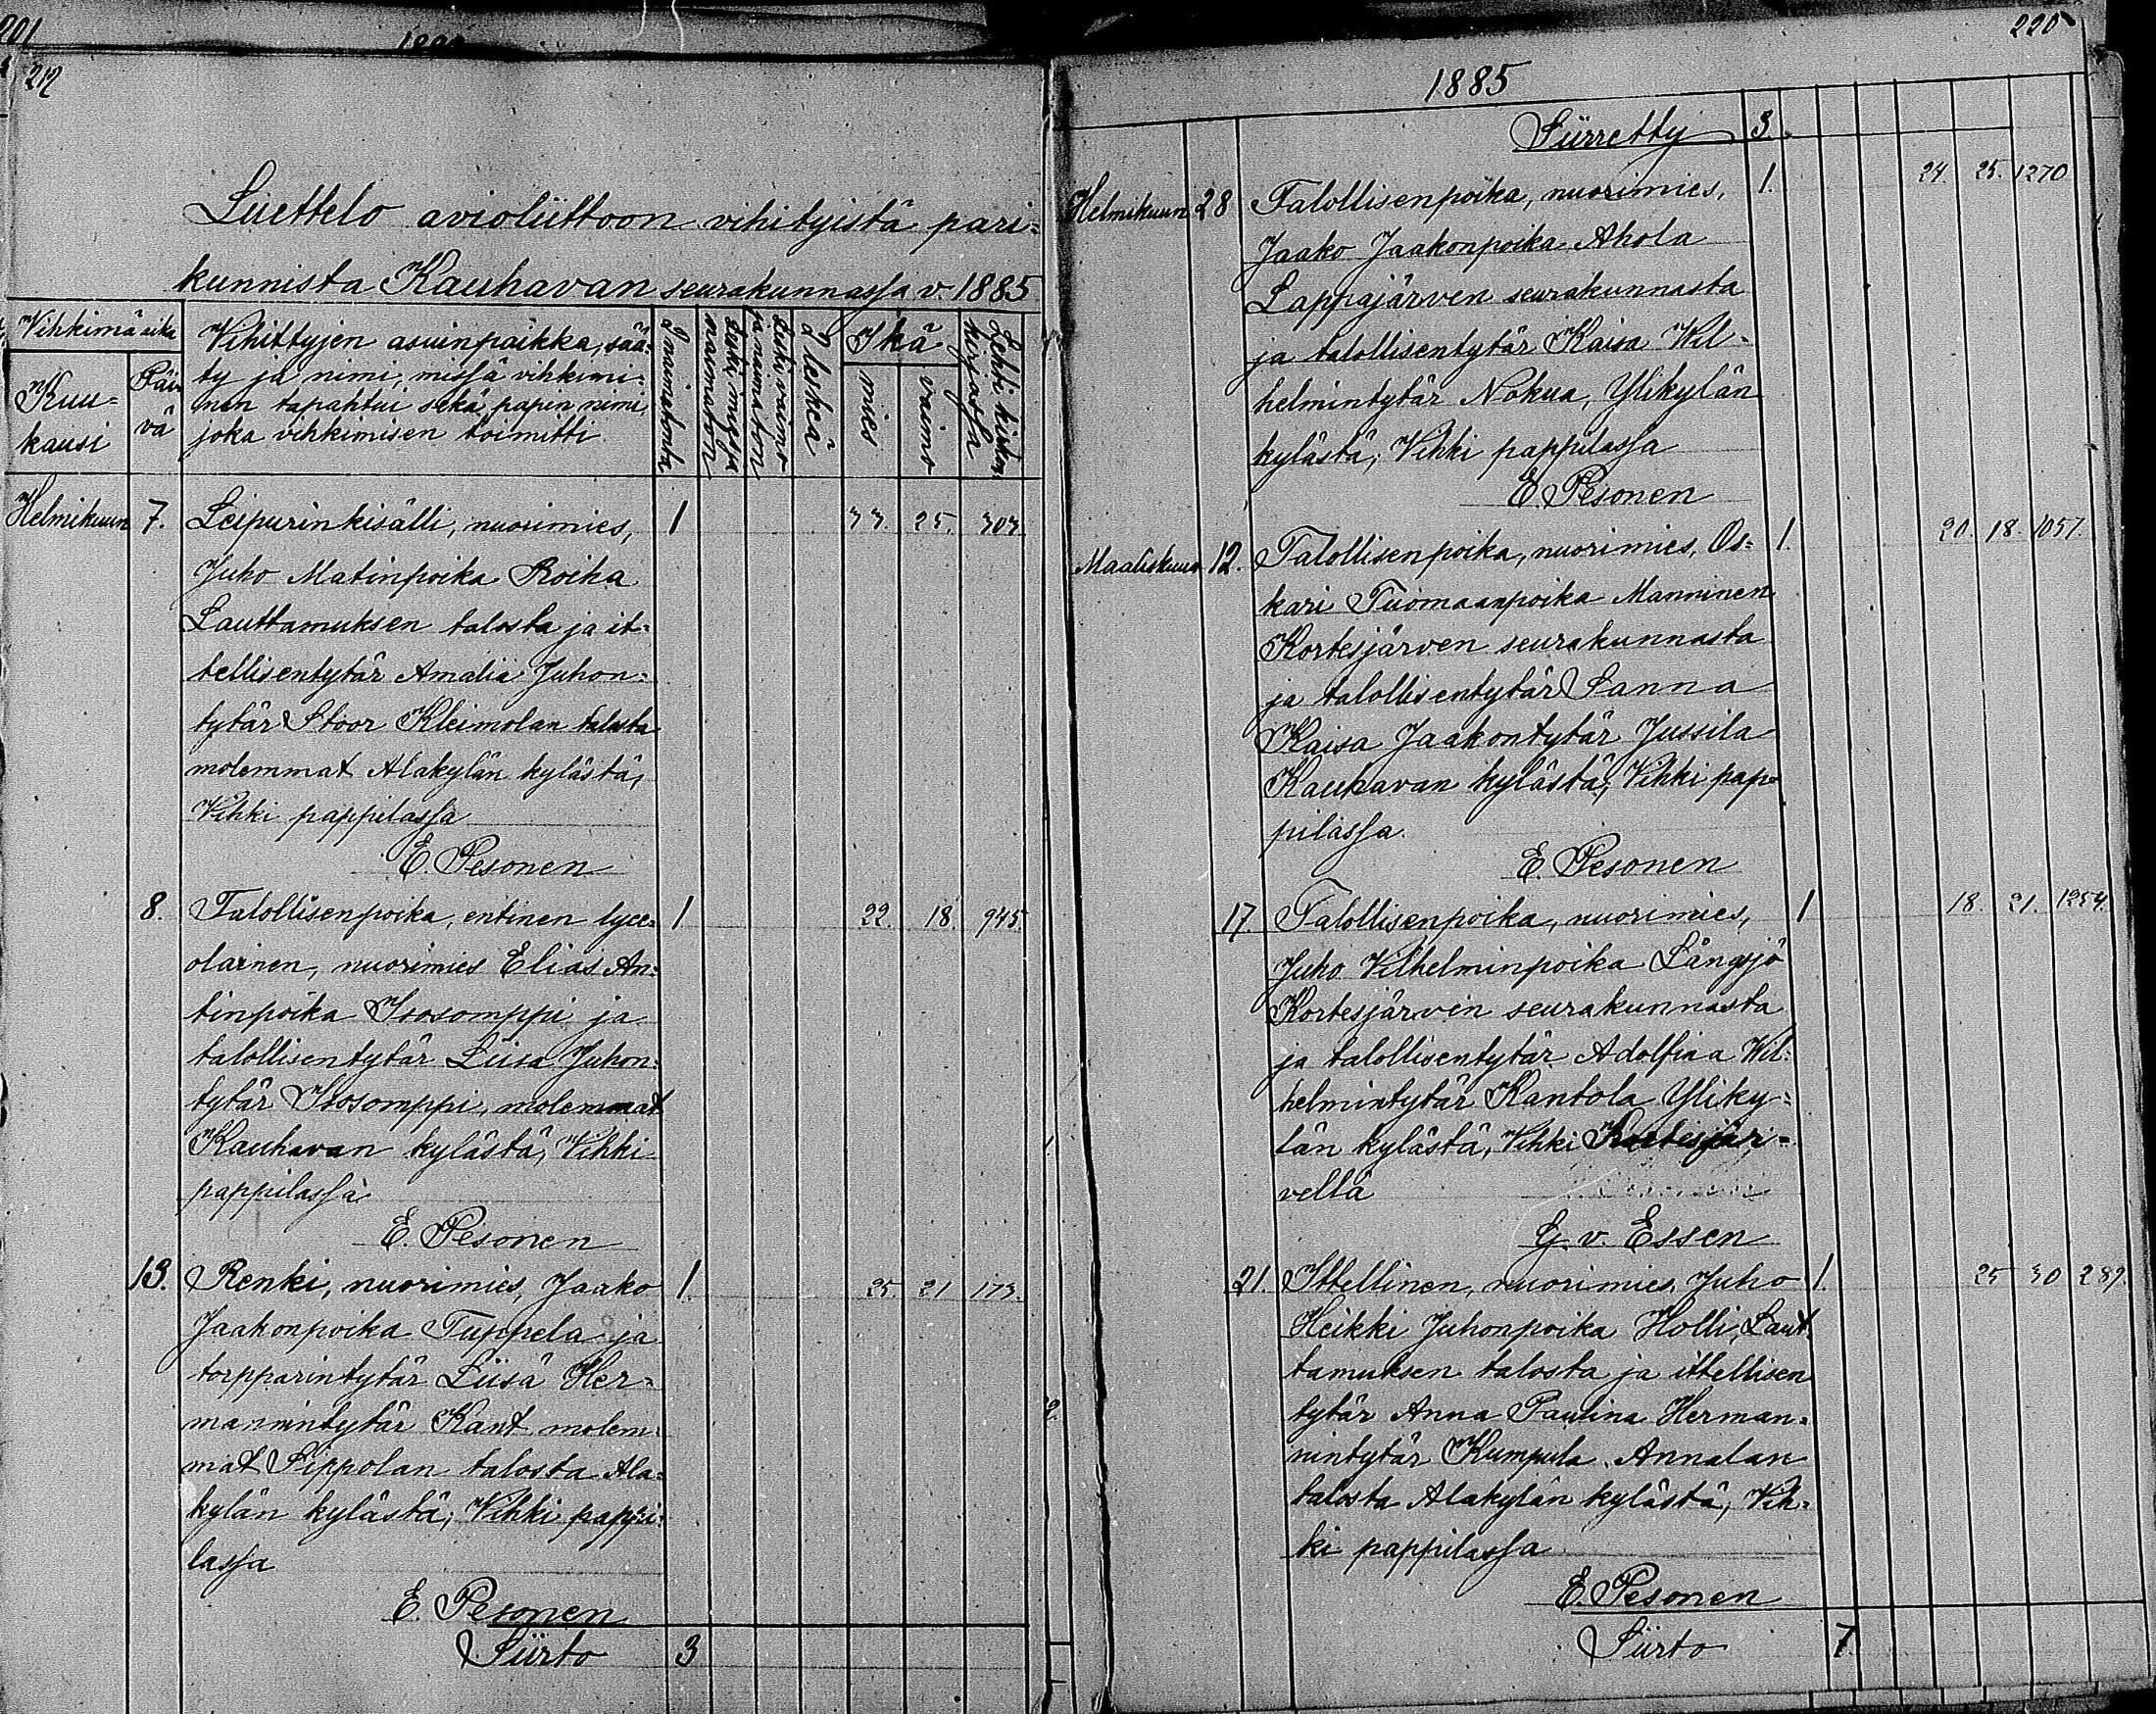 201
212
Luettelo avioliittoon vihityistä pari=
kunnista Kauhavan seurakunnassa v. 1885
Vihkimä aika
Kuu=
kausi
Päi=
vä
Vihittyjen asuinpaikka, sää=
ty ja nimi, missä vihkimi=
nen tapahtui sekä papin nimi,
joka vihkimisen toimitti
2 naimatonta
Leski mies ja
naimaton
Leski vaimo
ja naimaton
2 leskeä
Ikä
mies
vaimo
Lehti kirkon
kirjassa
Helmikuun 7. Leipurinkisälli, nuorimies, 1 33. 25. 303.
Juho Matinpoika Roiha
Lauttamuksen talosta ja it=
tellisentytär Amalia Juhon=
tytär Stoor Kleimolan talosta
molemmat Alakylän kylästä,
Vihki pappilassa
E. Pesonen
8. Talollisenpoika, entinen lyce= 1 22. 18. 945.
olainen, nuorimies Elias An=
tinpoika Isosomppi ja
talollisentytär Liisa Juhon=
tytär Isosomppi, molemmat
Kauhavan kylästä, Vihki
pappilassa
E. Pesonen
13. Renki, nuorimies, Jaako 1. 25. 21 173.
Jaakonpoika Tuppela ja
torpparintytär Liisa Her=
mannintytär Kant molem=
mat Sippolan talosta Ala=
kylän kylästä; Vihki pappi=
lassa
E. Pesonen
Siirto 3
220
1885
Siirretty 3.
Helmikuun 28 Talollisenpoika, nuorimies, 1. 24. 25. 1270
Jaako Jaakonpoika Ahola
Lappajärven seurakunnasta
ja talollisentytär Kaisa Wil=
helmintytär Nokua, Ylikylän
kylästä; Vihki pappilassa
E. Pesonen
Maaliskuun 12. Talollisenpoika, nuorimies, Os= 1. 20. 18. 1057.
kari Tuomaanpoika Manninen
Kortesjärven seurakunnasta
ja talollisentytär Sanna
Kaisa Jaakontytär Jussila
Kauhavan kylästä; Vihki pap=
pilassa
E. Pesonen
17. Talollisenpoika, nuorimies, 1 18. 21. 1254.
Juho Vilhelminpoika Långsjö
Kortesjärvin seurakunnasta
ja talollisentytär Adolfina Wil=
helmintytär Kantola Yliky=
län kylästä, Vihki Kortesjär=
vellä
G. v. Essen
21. Ittellinen, nuorimies, Juho 1. 25 30 289.
Heikki Juhonpoika Holli, Laut=
tamuksen talosta ja ittellisen
tytär Anna Paulina Herman=
nintytär Kumpula Annalan
talosta Alakylän kylästä, Vih=
ki pappilassa
E. Pesonen
Siirto 7.